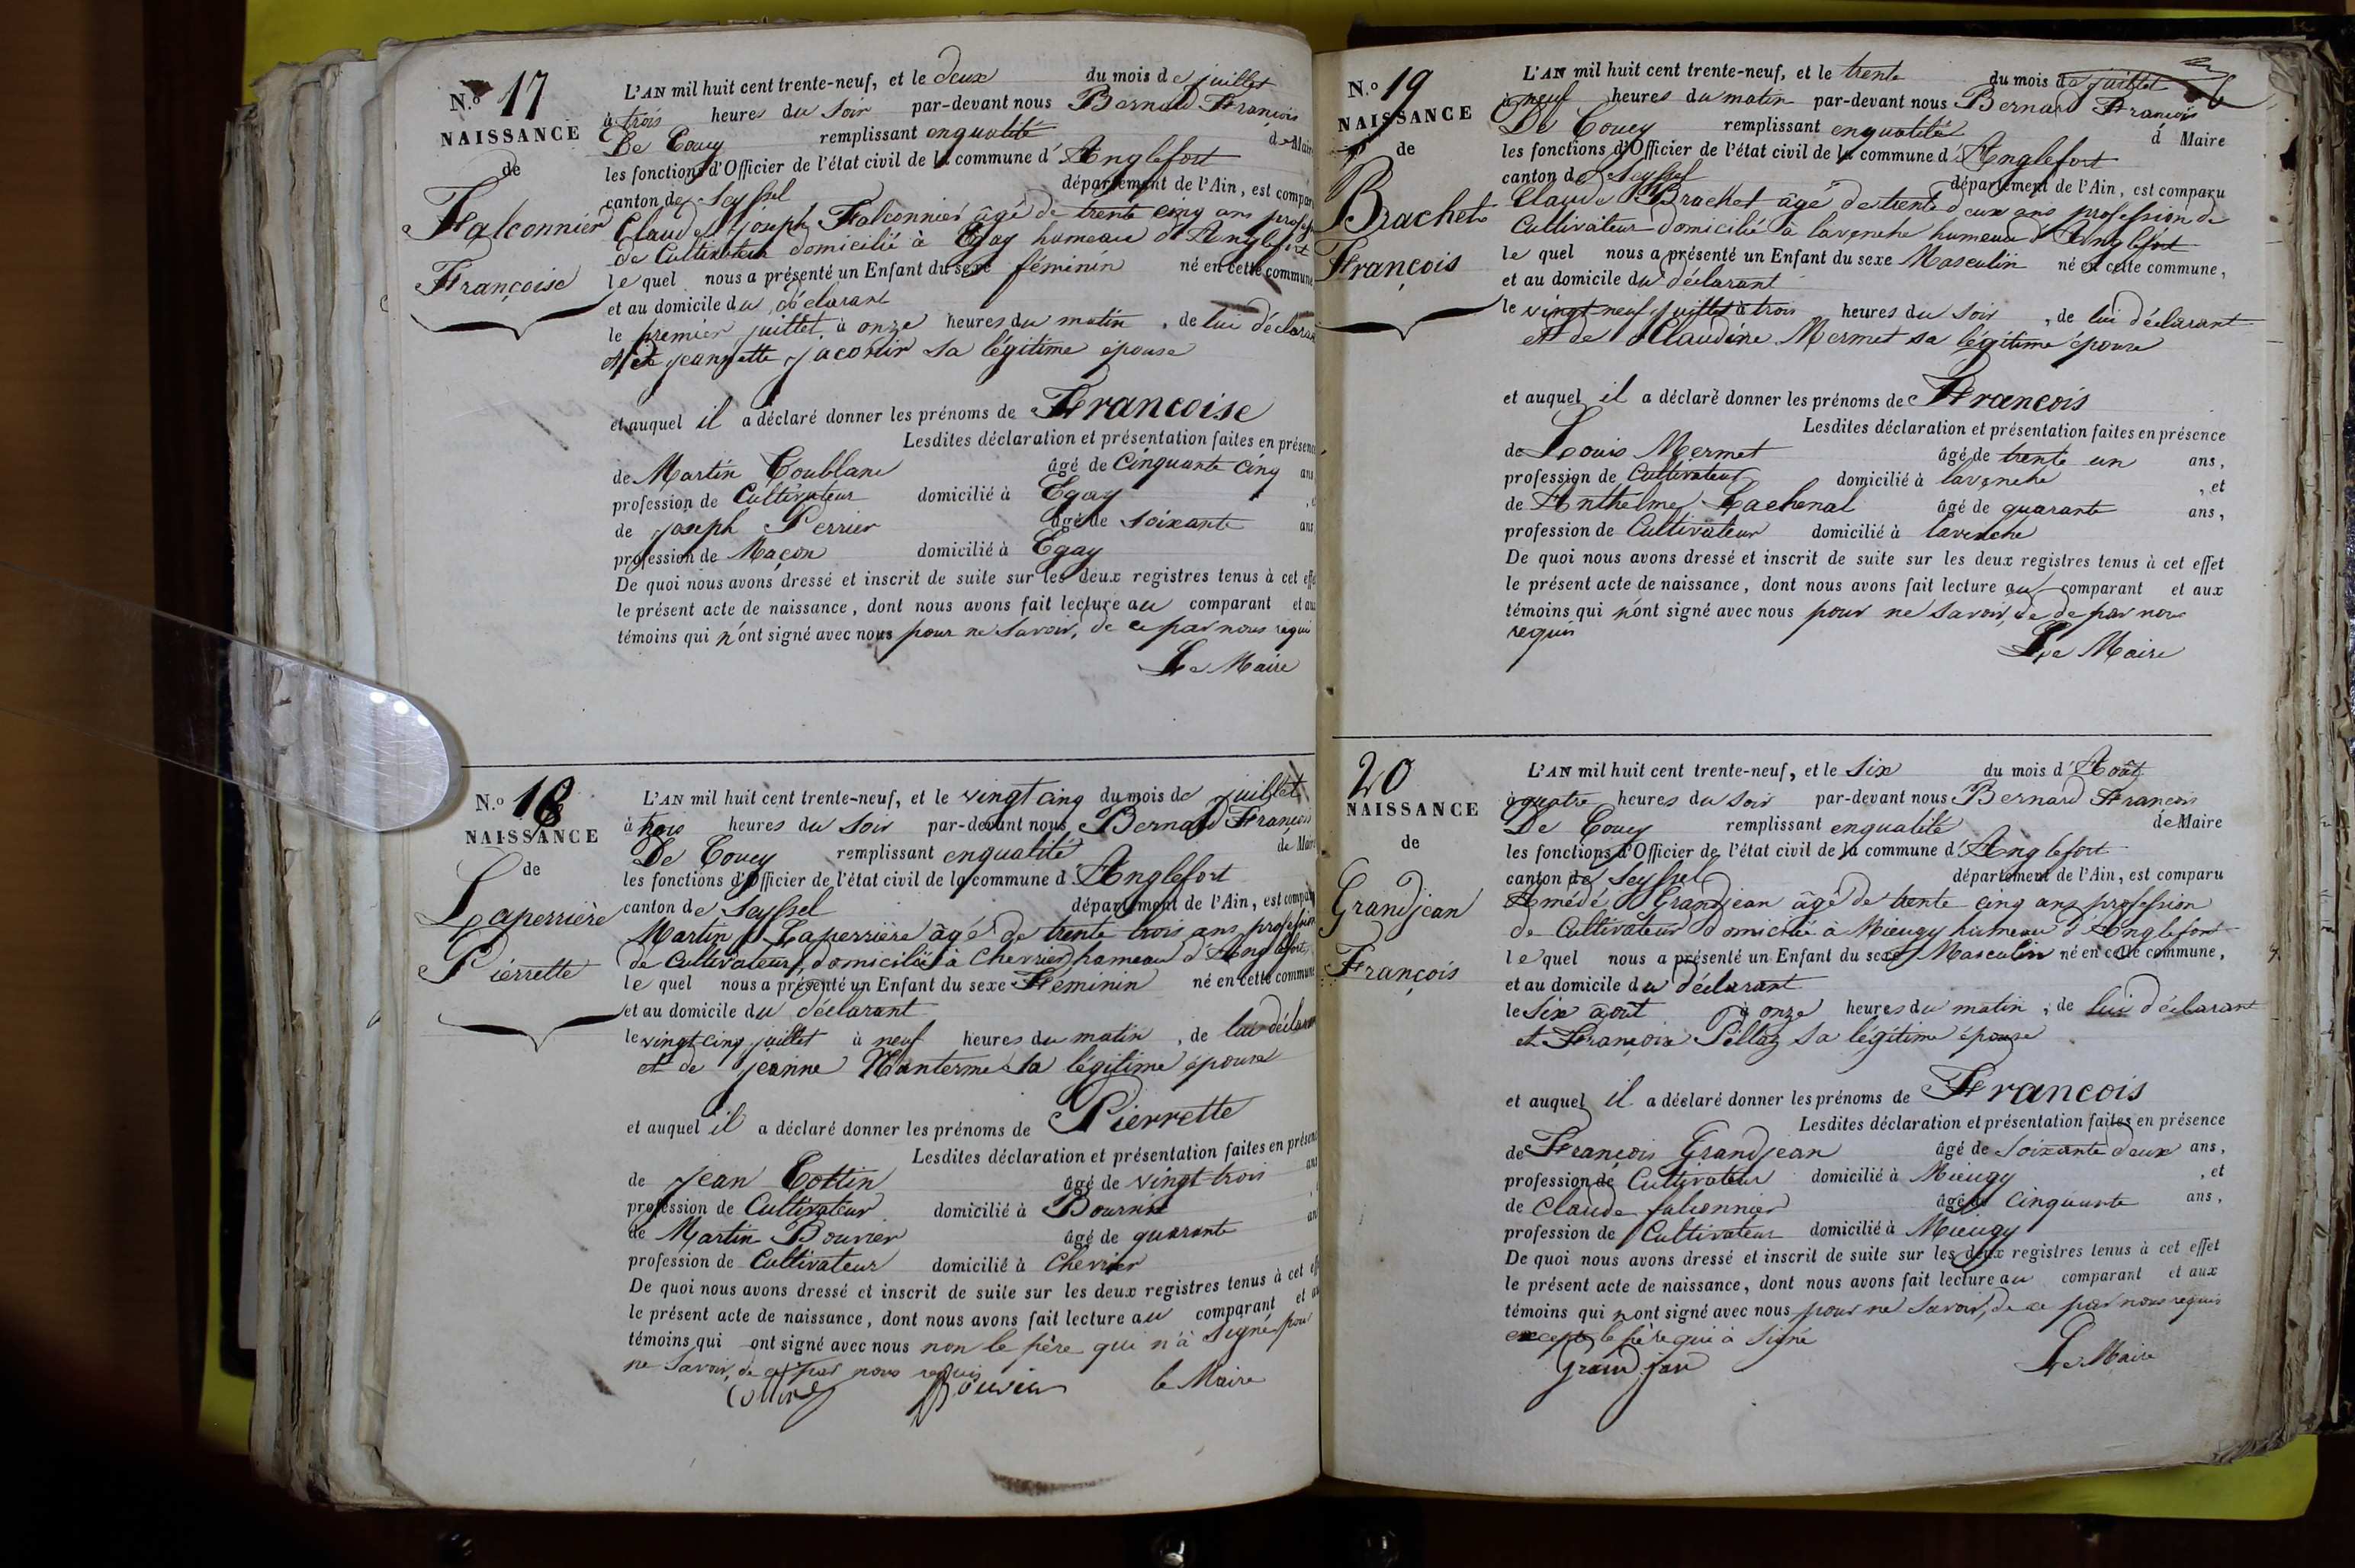 N.o 17
NAISSANCE
de
Falconnier
Françoise
L'AN mil huit cent trente-neuf, et le deux du mois de juillet
à trois heures du soir par-devant nous Bernard François
De Coucy remplissant en qualité de Maire
les fonctions d'Officier de l'état civil de la commune d'Anglefort
canton de Seyssel département de l'Ain, est compar
Claude Joseph Falconnier âgé de trente cinq ans profess
de Cultivateur domicilié à Egay hameau d'Anglefort
le quel nous a présenté un Enfant du sexe féminin né en cette commune
et au domicile du déclarant
le premier juillet à onze heures du matin, de lui déclara
et de jeannette sa légitime épouse
et auquel il a déclaré donner les prénoms de Francoise
Lesdites déclaration et présentation faites en présenc
de Martin Coublanc âgé de Cinquante cinq ans
profession de Cultivateur domicilié à Egay
de joseph Perrier âgé de soixante ans
profession de Maçon domicilié à Egay
De quoi nous avons dressé et inscrit de suite sur les deux registres tenus à cet effe
le présent acte de naissance, dont nous avons fait lecture au comparant et aux
témoins qui n'ont signé avec nous pour ne savoir, de ce par nous requis
Le Maire
N.o 18
NAISSANCE
de
Laperrière
Pierrette
L'AN mil huit cent trente-neuf, et le vingt cinq du mois de juillet
à trois heures du soir par-devant nous Bernard François
De Coucy remplissant en qualité de Maire
les fonctions d'Officier de l'état civil de la commune d Anglefort
canton de Seyssel département de l'Ain, est compar
Martin Laperrière âgé de trente trois ans profession
de Cultivateur, domicilié à Chevrier hameau d'Anglefort
le quel nous a présenté un Enfant du sexe Feminin né en cette commune
et au domicile du déclarant
le vingt cinq juillet à neuf heures du matin, de lui déclarant
et de jeanne Nanterme sa légitime épouse
et auquel il a déclaré donner les prénoms de Pierrette
Lesdites déclaration et présentation faites en présenc
de jean Cottin âgé de vingt trois ans
profession de Cultivateur domicilié à
de Martin Bouvier âgé de quarante an
profession de Cultivateur domicilié à Chevrier
De quoi nous avons dressé et inscrit de suite sur les deux registres tenus à cet eff
le présent acte de naissance, dont nous avons fait lecture au comparant et au
témoins qui ont signé avec nous non le père qui n'à signé pour
ne savoir, de ce par nous requis
Bouvier le Maire
N.o 19
NAISSANCE
de
Brachet
François
L'AN mil huit cent trente-neuf, et le trente du mois de juillet
à neuf heures du matin par-devant nous Bernard François
De Coucy remplissant en qualité d Maire
les fonctions d'Officier de l'état civil de la commune d'Anglefort
canton de Seyssel département de l'Ain, est comparu
Claude Brachet âgé de trente deux ans profession de
Cultivateur domicilié à lavenche hameau d'Anglefort
le quel nous a présenté un Enfant du sexe Masculin né en cette commune,
et au domicile du déclarant
le vingt neuf juillet à trois heures du soir, de lui déclarant
et de Claudine Mermet sa légitime épouse
et auquel il a déclaré donner les prénoms de Francois
Lesdites déclaration et présentation faites en présence
de Louis Mermet âgé de trente un ans,
profession de Cultivateur domicilié à lavenche, et
de Anthelme Lachenal âgé de quarante ans,
profession de Cultivateur domicilié à lavenche
De quoi nous avons dressé et inscrit de suite sur les deux registres tenus à cet effet
le présent acte de naissance, dont nous avons fait lecture au comparant et aux
témoins qui n'ont signé avec nous pour ne savoir, de de par nous
requis
Le Maire
20
NAISSANCE
de
Grandjean
François
L'AN mil huit cent trente-neuf, et le Six du mois d'Août
à quatre heures du soir par-devant nous Bernard François
De Coucy remplissant en qualité de Maire
les fonctions d'Officier de l'état civil de la commune d'Anglefort
canton de Seyssel département de l'Ain, est comparu
Amédé Grandjean âgé de trente cinq ans profession
de Cultivateur domicilié à Mieugy hameau d'Anglefort
le quel nous a présenté un Enfant du sexe Masculin né en cette commune,
et au domicile du déclarant
le six août à onze heures du matin, de lui déclarant
et Françoise Pillaz sa légitime épouse
et auquel il a déclaré donner les prénoms de Francois
Lesdites déclaration et présentation faites en présence
de François Grandjean âgé de soixante deux ans,
profession de Cultivateur domicilié à Mieugy, et
de Claude falconnier âgé de cinquante ans,
profession de Cultivateur domicilié à Mieugy
De quoi nous avons dressé et inscrit de suite sur les deux registres tenus à cet effet
le présent acte de naissance, dont nous avons fait lecture au comparant et aux
témoins qui n ont signé avec nous pour ne savoir, de ce par nous requis
excepté le père qui à signé
Grand jan Le Maire